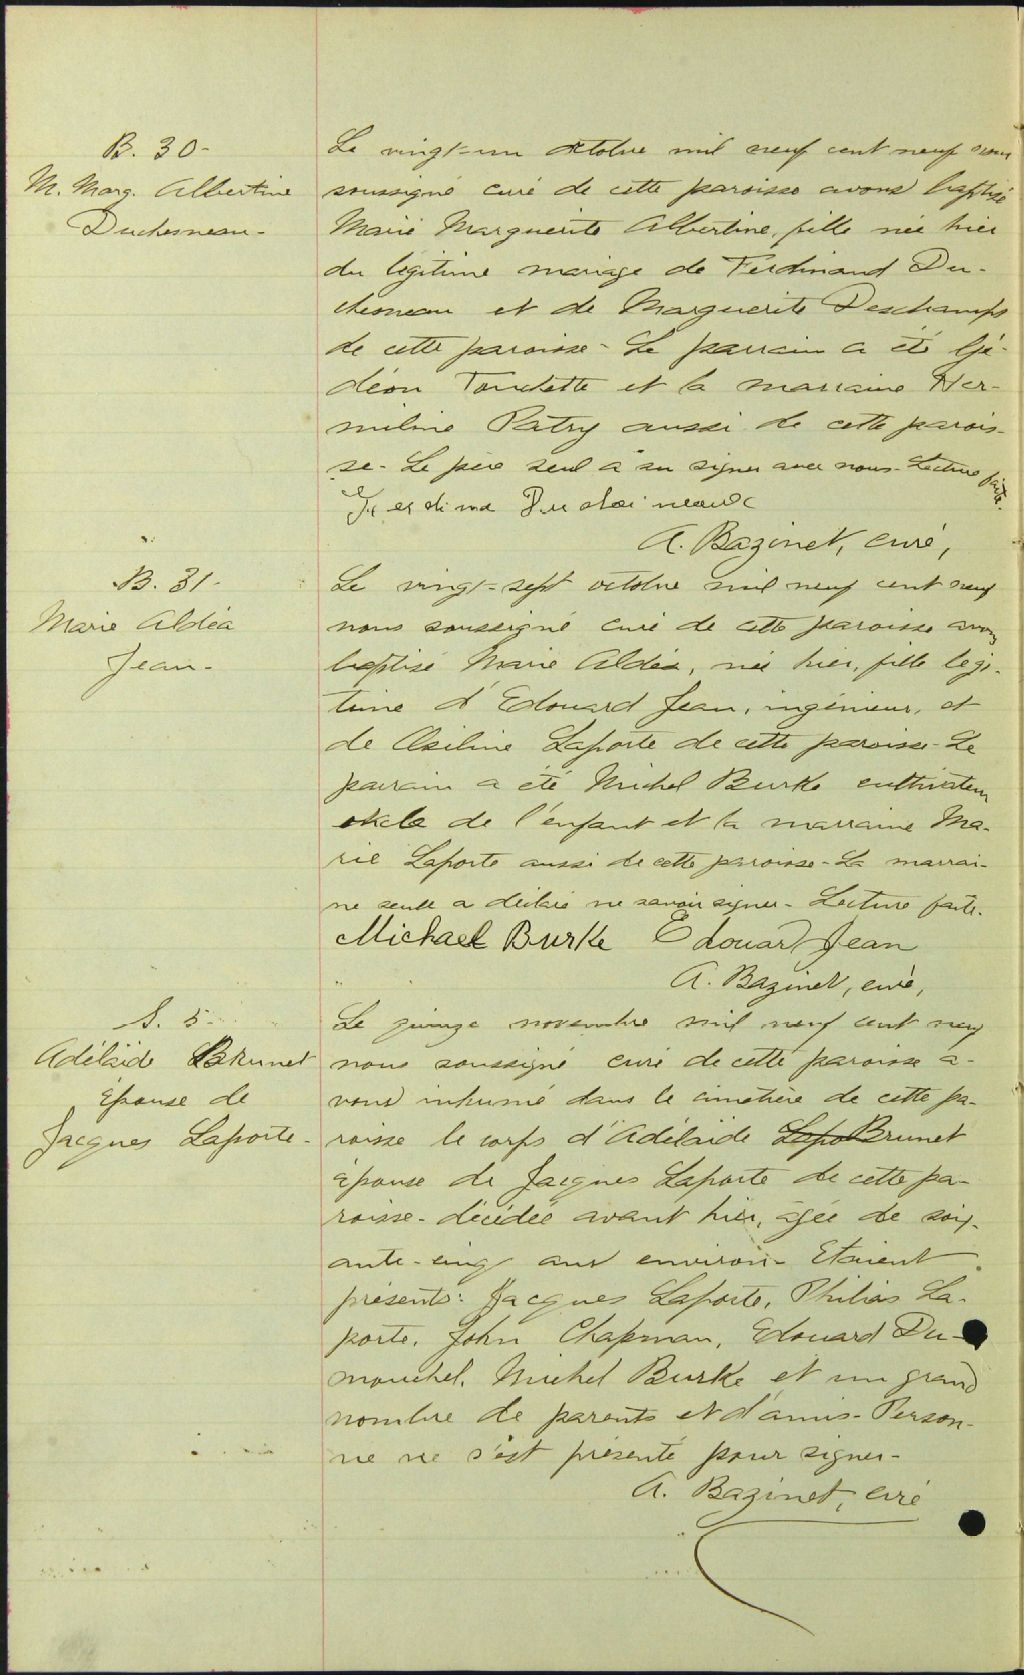 B. 30-
M. Marg. Albertine
Duchesneau-
Le vingt-un octobre mil neuf cent neuf nous
soussigné curé de cette paroisse avons baptisé
Marie Marguerite Albertine, fille née hier
du légitime mariage de Ferdinand Du-
chesneau et de Marguerite Deschamps
de cette paroisse- Le parrain a été Gé-
déon Touchette et la marraine Her-
miline Patry aussi de cette parois-
se- Le père seul a su signer avec nous- Lecture faite.
A. Bazinet, curé,
B. 31-
Marie Aldéa
Jean-
Le vingt-sept octobre mil neuf cent neuf
nous soussigné curé de cette paroisse avons
baptisé Marie Aldéa, née hier, fille légi-
time d'Edouard Jean, ingénieur, et
de Osiline Laporte de cette paroisse- Le
parrain a été Michel Burke cultivateur
oncle de l'enfant et la marraine Ma-
rie Laporte aussi de cette paroisse- La marrai-
ne seule a déclaré ne savoir signer- Lecture faite.
Michael Burke Edouard Jean
A. Bazinet, curé,
S. 5-
Adélaïde Brunet
épouse de
Jacques Laporte-
Le quinze novembre mil neuf cent neuf
nous soussigné curé de cette paroisse a-
vons inhumé dans le cimetière de cette pa-
roisse le corps d'Adélaïde Lapo Brunet
épouse de Jacques Laporte de cette pa-
roisse- décédée avant hier, âgée de soix-
ante-cinq ans environ- Etaient
présents: Jacques Laporte, Philias La-
porte, John Chapman, Edouard Du-
mouchel, Michel Burke et un grand
nombre de parents et d'amis- Person-
ne ne s'est présenté pour signer-
A. Bazinet, curé